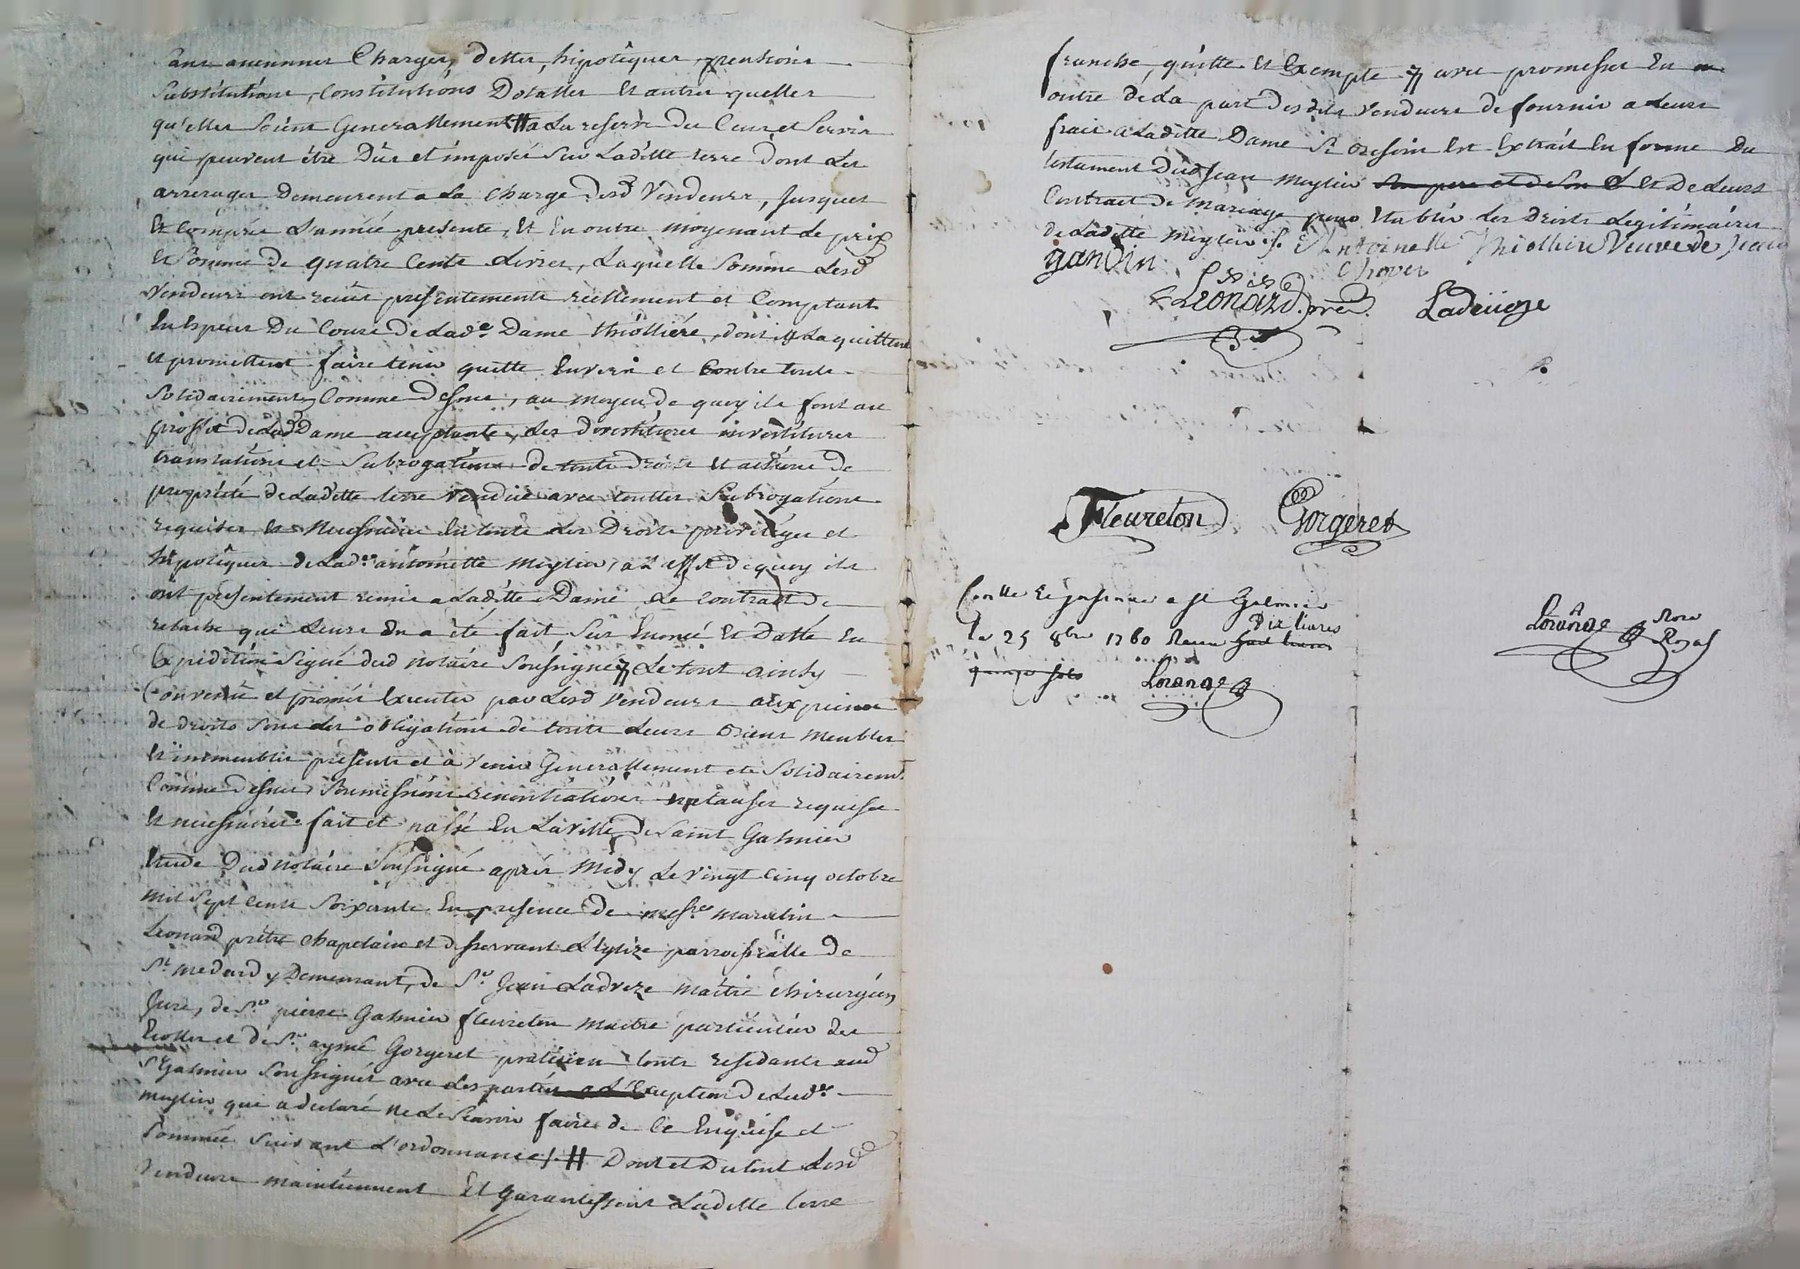 sans aucunnes Charges, dettes, hipotêques, pensions
substitutions, constitutions Dotalles Et autres quelles
qu'elles soient Generallement # a La reserve des Cens et servis
qui peuvent être Dûs et imposés sur Laditte terre dont Les
arrerages Demeurent a La charge desd Vendeurs, jusques
Et Compris L'année presente, Et En outre moyenant Le prix
et Somme de quatre Cents Livres, Laquelle Somme Lesd
Vendeurs ont reçûs presentements reellement et Comptant
En Espèces Du Cours de Lade Dame thiolliére, dont ils La quittent
et promettent faire tenir quitte Envers et Contre touts
Solidairement Comme dessus, au moyen de quoy ils font au
proffit de Lad Dame acceptante, Les devestitures investitures
translations et Subrogations de touts droits Et actions de
proprieté de Laditte terre Vendüe avec touttes Subrogations
requises et Necessaires En touts Les Droits privilêges et
hipotêques de Lade antoinette meylin, a L'effet de quoy ils
ont présentement remis a Laditte Dame Le Contract de
relache qui Leurs En a été fait, sus Enoncé Et Datté En
Expedition Signé dud notaire soussigné Le tout ainsy
Convenû et promis Executer par Lesd Vendeurs aux peines
de droits sous Les obligations de touts Leurs Biens meubles
Et immeubles présents et à Venir Generallement et Solidairemt
Comme dessus, soumissions renontiations et clauses requises
Et necessaires. fait et passé En La Ville de Saint Galmier
Etude Dud notaire Soussigné après midy Le Vingt Cinq octobre
mil Sept Cents Soixante En presence de messre
Leonard prêtre chapelain et desservant L'Eglize parroissialle de
St medard y Demeurant, de Sr Jean Ladveze maître chirurgien
Juré, de Sr pierre Galmier fleureton maitre particulier des
Ecolles et de Sr aymé Gorgeret praticien touts residants aud
St Galmier soussignés avec Les parties a L'Exception de Lade
meylin qui a declaré ne Le sçavoir faire de Ce Enquise et
Sommée suivant L'ordonnance /. # Dont et Du tout Lesd
Vendeurs maintiennent Et garantissent Laditte terre
franche, quitte Et Exempte avec promesses En
outre de La part Desdits Vendeurs de fournir a Leurs
frais a Laditte Dame si Besoin Est Extrait En forme Du
testament Dud Jean meylin son pere et de son Et De Leurs
Contract de mariage pour Etablir Les Droits Legitimaires
de Laditte meylin /. Antoinette Thiolliere Veuve de Jean
Chover
gandin
Leonard. prê. Ladveze
Fleureton Gorgeret
Contlle Et Insinué a St Galmier
Le 25 8bre 1760 Recu dix livres
Lorange
Lorange Nore
Royal